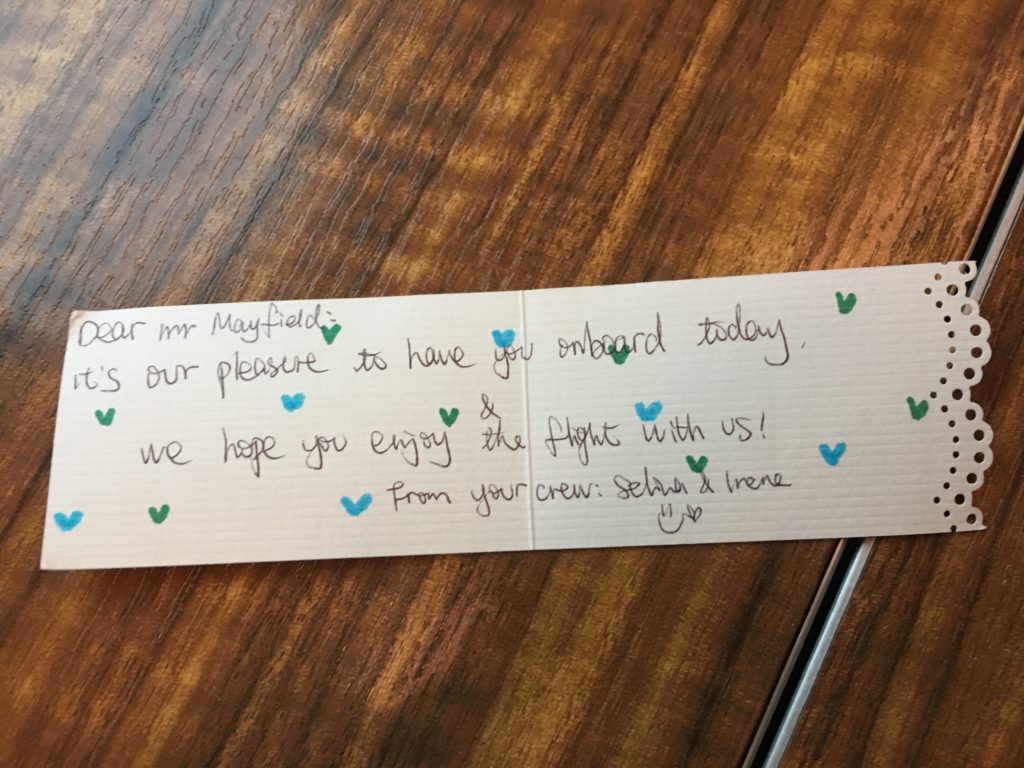 Dear mr Mayfield:
it's our pleasure to have you onboard today.
&
we hope you enjoy the flight with us!
From your crew: Selina & Irene